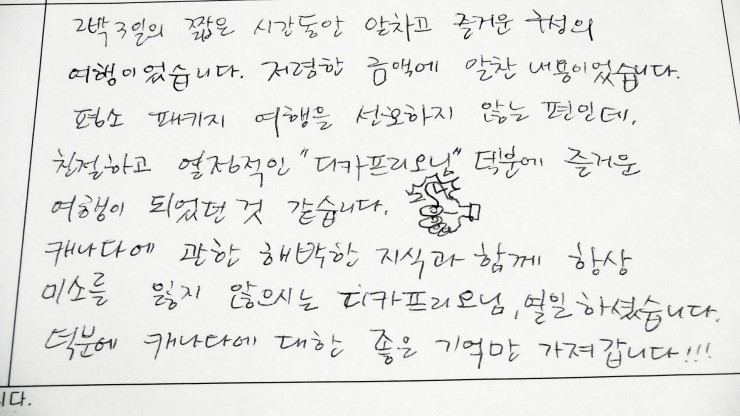 2박 3일의 짧은 시간동안 알차고 즐거운 구성의
여행이었습니다. 저렴한 금액에 알찬 내용이었습니다.
평소 패키지 여행을 선호하지 않는 편인데,
친절하고 열정적인 "디카프리오님" 덕분에 즐거운
여행이 되었던 것 같습니다.
캐나다에 관한 해박한 지식과 함께 항상
미소를 잃지 않으시는 디카프리오님, 열일하셨습니다.
덕분에 캐나다에 대한 좋은 기억만 가져갑니다!!!
니다.